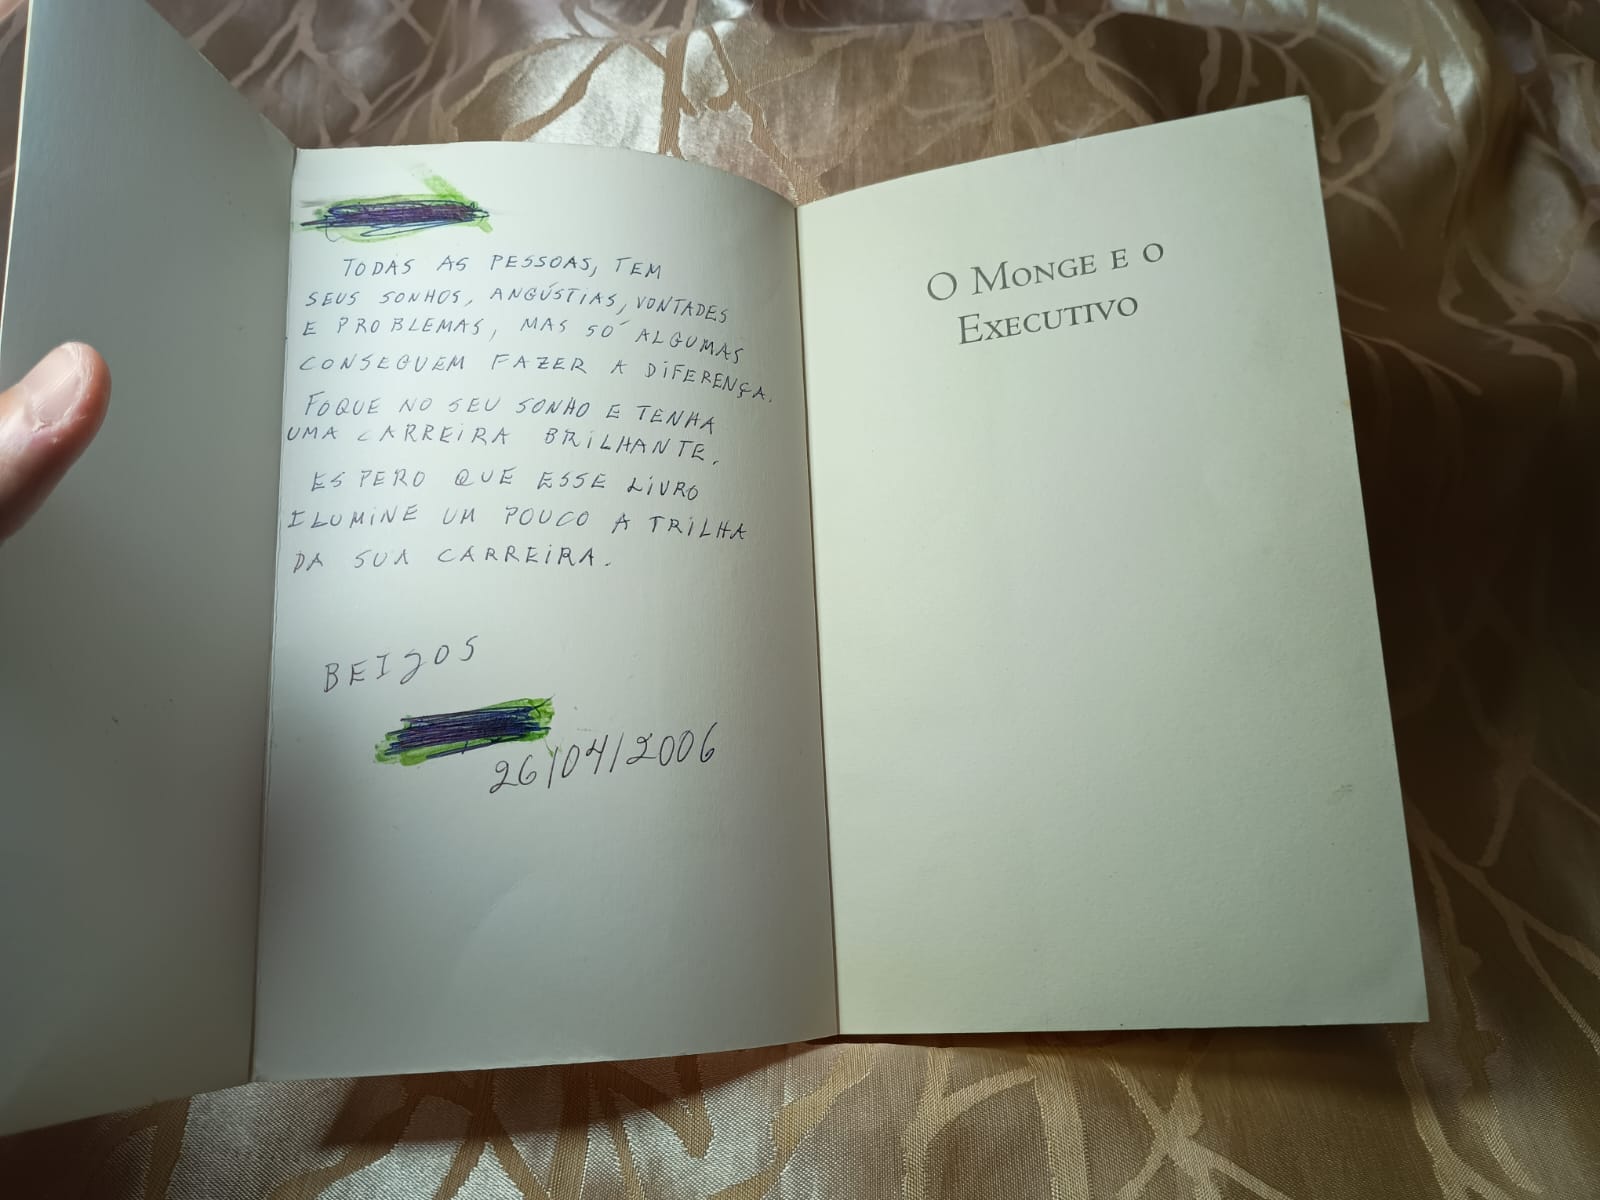 TODAS AS PESSOAS, TEM
SEUS SONHOS, ANGÚSTIAS, VONTADES
E PROBLEMAS, MAS SÓ ALGUMAS
CONSEGUEM FAZER A DIFERENÇA.
FOQUE NO SEU SONHO E TENHA
UMA CARREIRA BRILHANTE.
ESPERO QUE ESSE LIVRO
ILUMINE UM POUCO A TRILHA
DA SUA CARREIRA.
BEIJOS
26/04/2006
O MONGE E O
EXECUTIVO